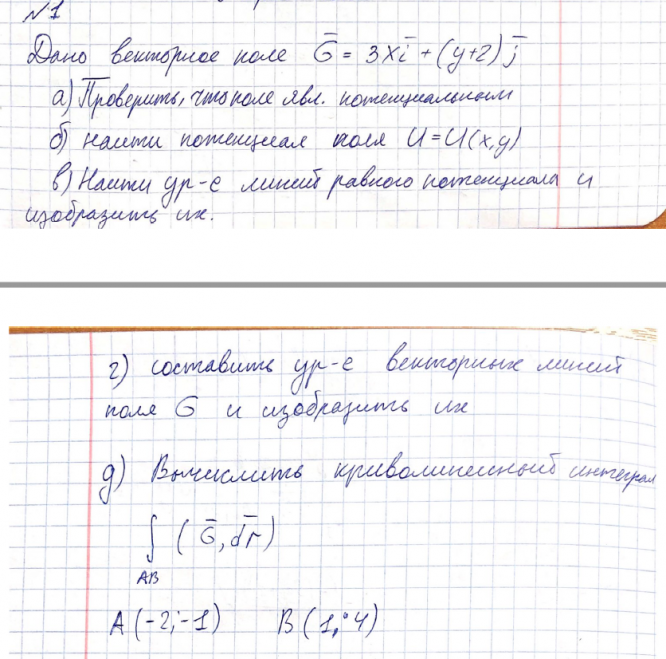 №1
Дано векторное поле G̅ = 3xi̅ + (y+2)j̅
а) Проверить, что поле явл. потенциальным
б) найти потенциал поля U=U(x,y)
в) Найти ур-е линий равного потенциала и
изобразить их.
г) составить ур-е векторных линий
поля G и изобразить их
д) Вычислить криволинейный интеграл
∫ (G̅, dr̅)
AB
A(-2;-1) B(1;4)